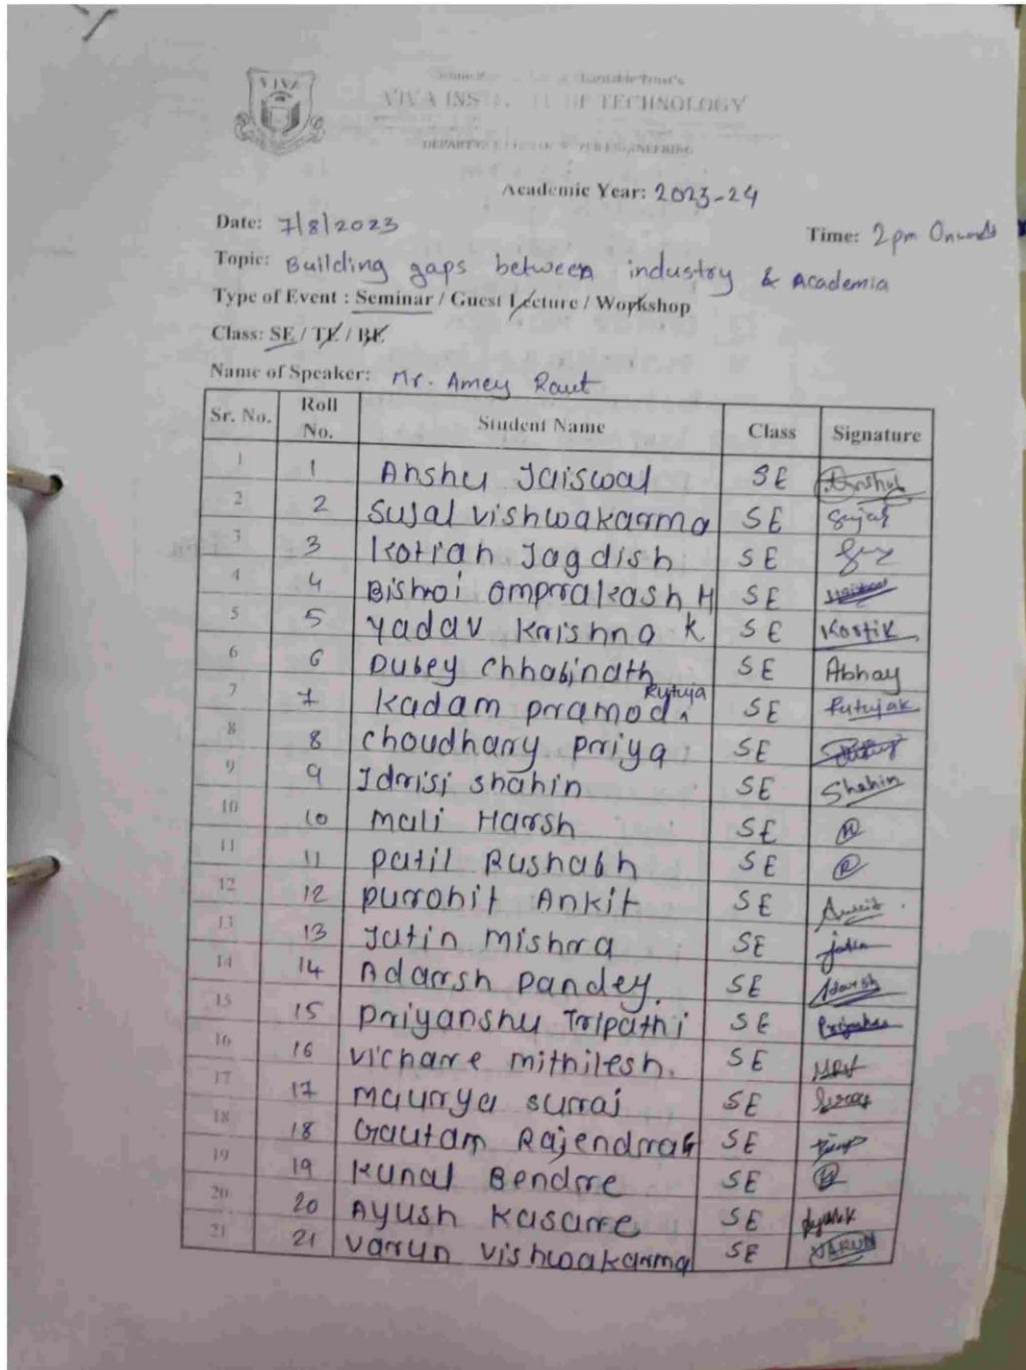 VIVA
VIVA INSTITUTE OF TECHNOLOGY
Academic Year: 2023-24
Date: 7/8/2023
Time: 2pm Onwards
Topic: Building gaps between industry & Academia
Type of Event : Seminar / Guest Lecture / Workshop
Class: SE / TE / BE
Name of Speaker: Mr. Amey Raut
Sr. No. Roll No. Student Name Class Signature
1 1 Anshu Jaiswal SE Anshu
2 2 Sujal vishwakarma SE Sujal
3 3 Kotiah Jagdish SE
4 4 Bishnoi omprakash H SE
5 5 Yadav Krishna K SE Kostik
6 6 Dubey Chhabinath SE Abhay
7 7 Kadam pramod Rutuja SE Rutujak
8 8 Choudhary priya SE
9 9 Idrisi shahin SE Shahin
10 10 Mali Harsh SE H
11 11 patil Rushabh SE R
12 12 purohit Ankit SE Ankit
13 13 Jatin mishra SE jatin
14 14 Adarsh pandey. SE Adarsh
15 15 priyanshu Tripathi SE
16 16 vichare mithilesh. SE
17 17 maurya suraj SE
18 18 Gautam Rajendra G SE
19 19 Kunal Bendre SE
20 20 Ayush Kasare SE
21 21 varun vishwakarma SE VARUN